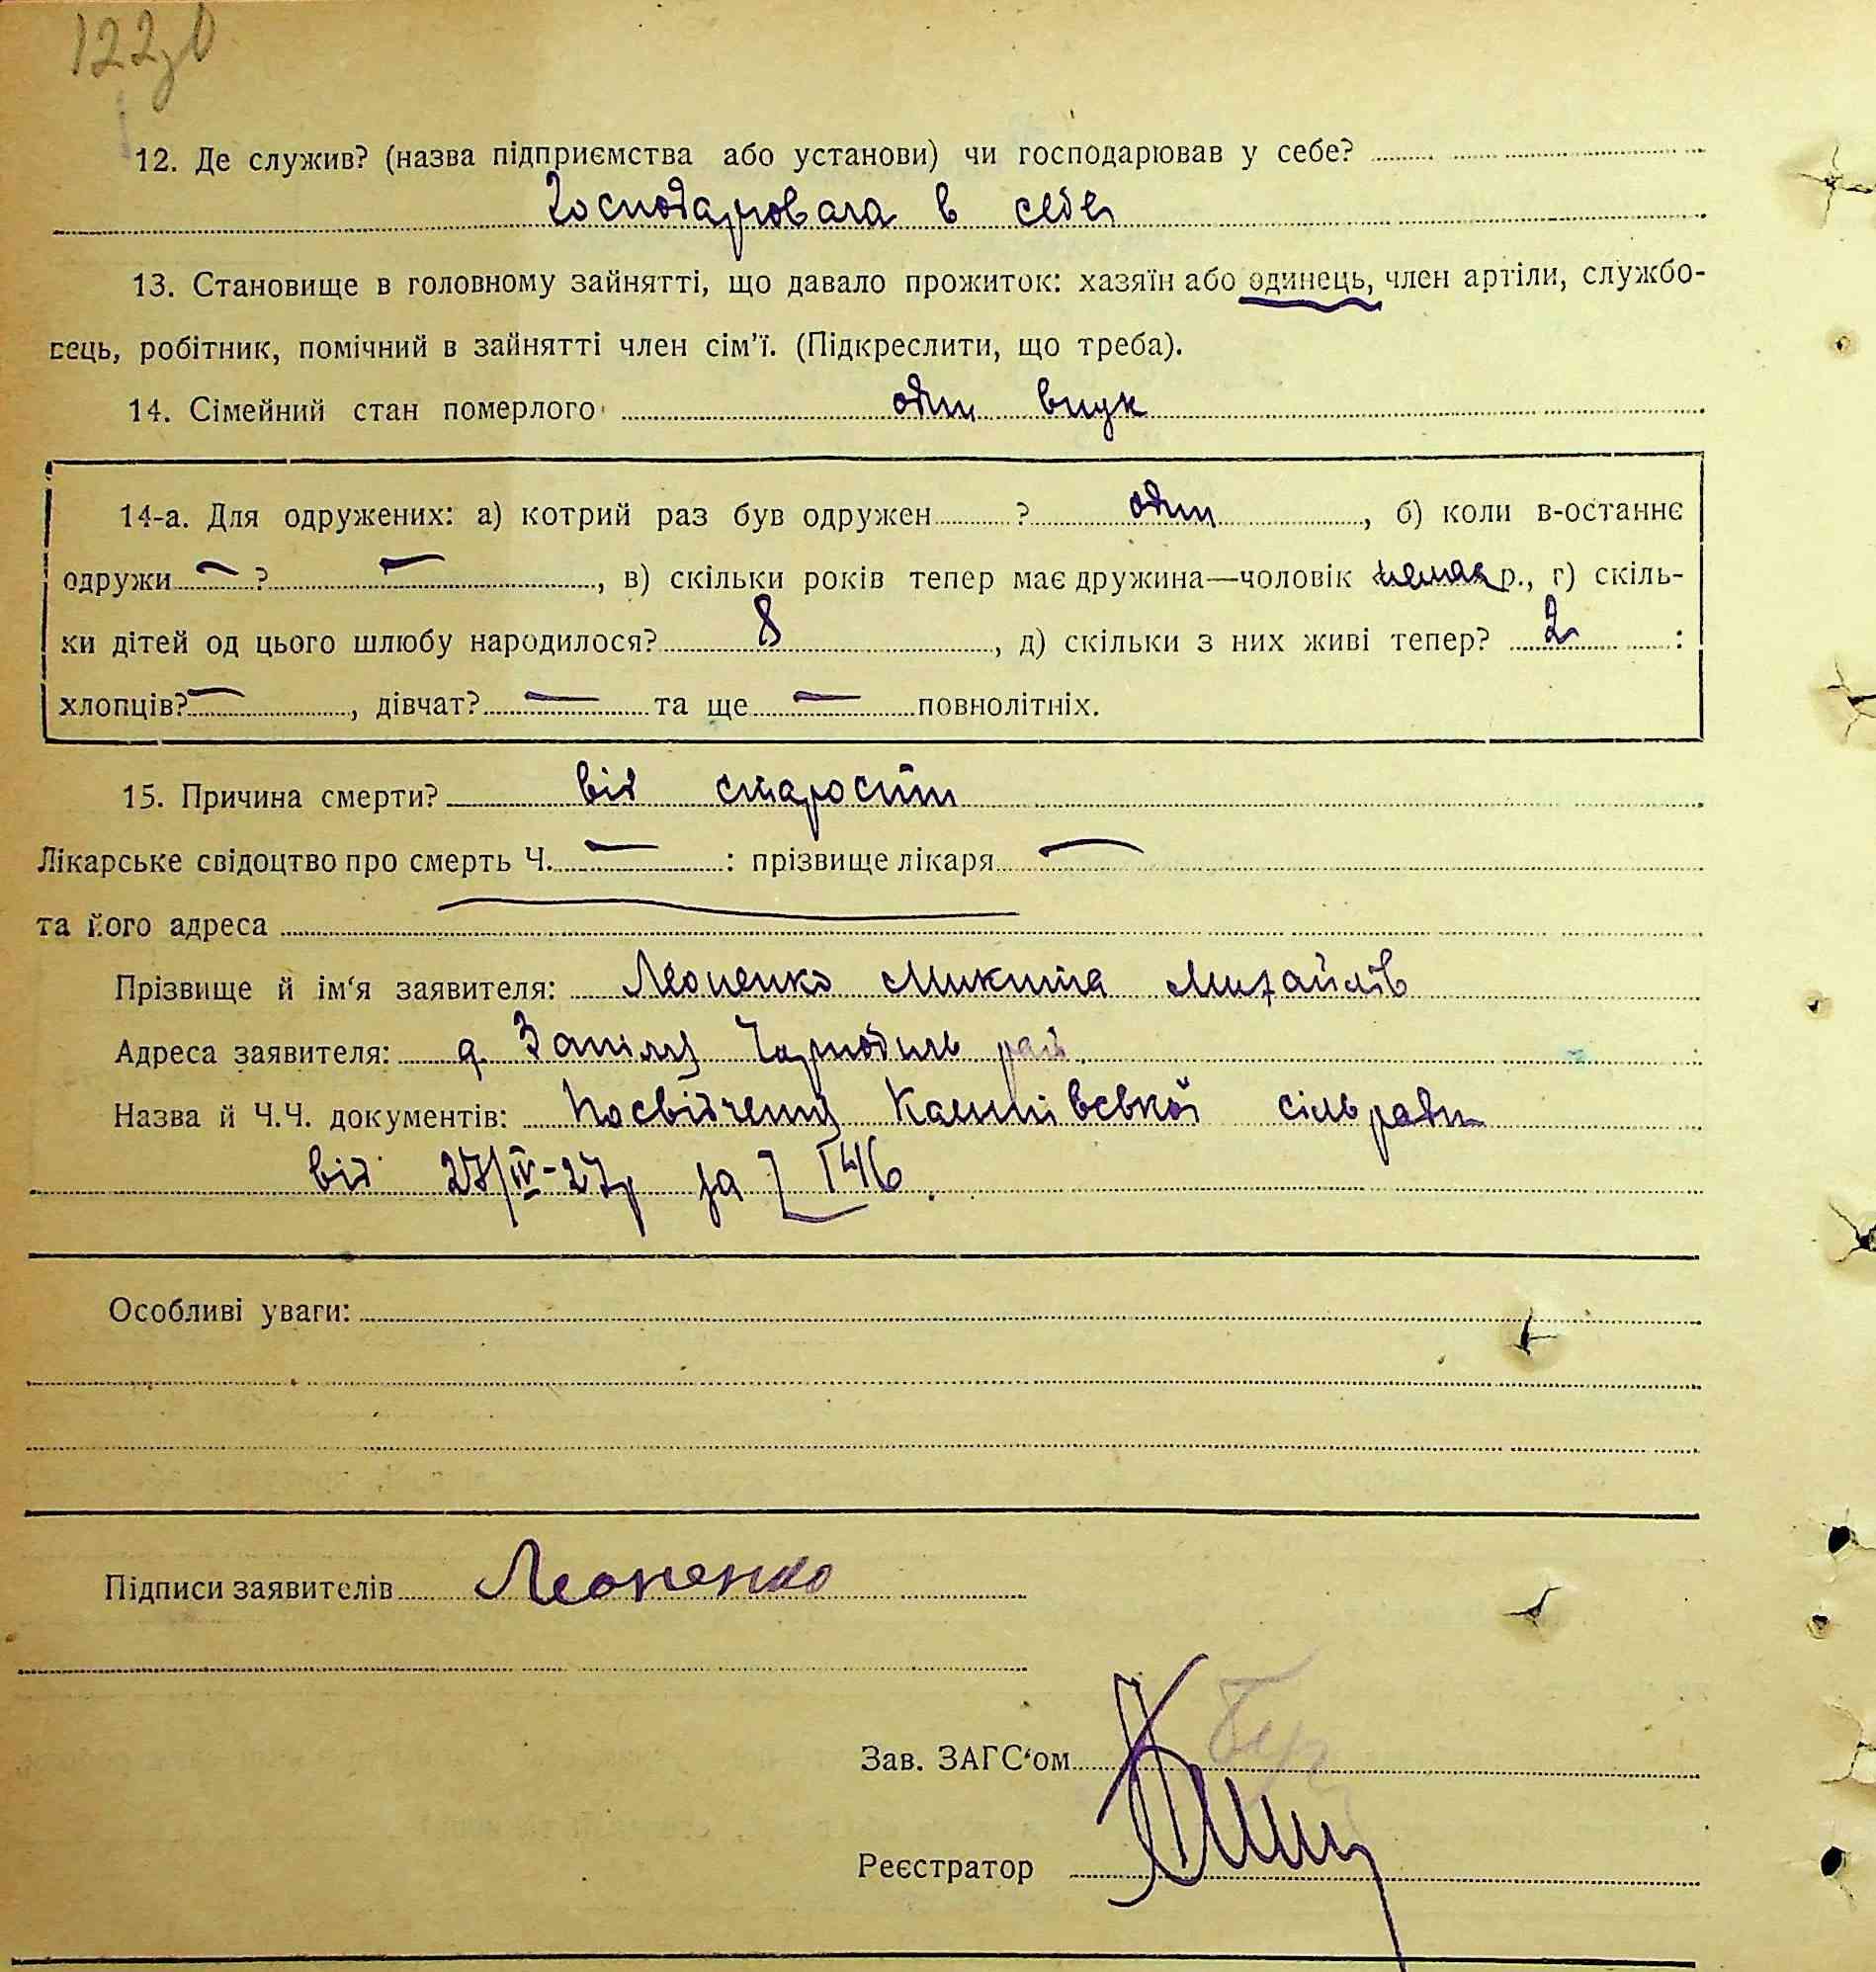 122
12. Де служив? (назва підприємства або установи) чи господарював у себе?
Господарювала в себе
13. Становище в головному зайнятті, що давало прожиток: хазяїн або одинець, член артіли, службо-
вець, робітник, помічний в зайнятті член сім’ї. (Підкреслити, що треба).
14. Сімейний стан померлого один внук
14-а. Для одружених: а) котрий раз був одружен ? один, б) коли в-останнє
одружи — ? —, в) скільки років тепер має дружина—чоловік немає р., г) скіль-
ки дітей од цього шлюбу народилося? 8, д) скільки з них живі тепер? 2 :
хлопців? —, дівчат? — та ще — повнолітніх.
15. Причина смерти? від старости
Лікарське свідоцтво про смерть Ч. — : прізвище лікаря —
та його адреса —
Прізвище й ім‘я заявителя: Леоненко Микита Михайлів
Адреса заявителя: рай.
Назва й Ч.Ч. документів: Посвідчення сільради
від 27/IV-27р за 146.
Особливі уваги:
Підписи заявителів Леоненко
Зав. ЗАГС‘ом
Реєстратор